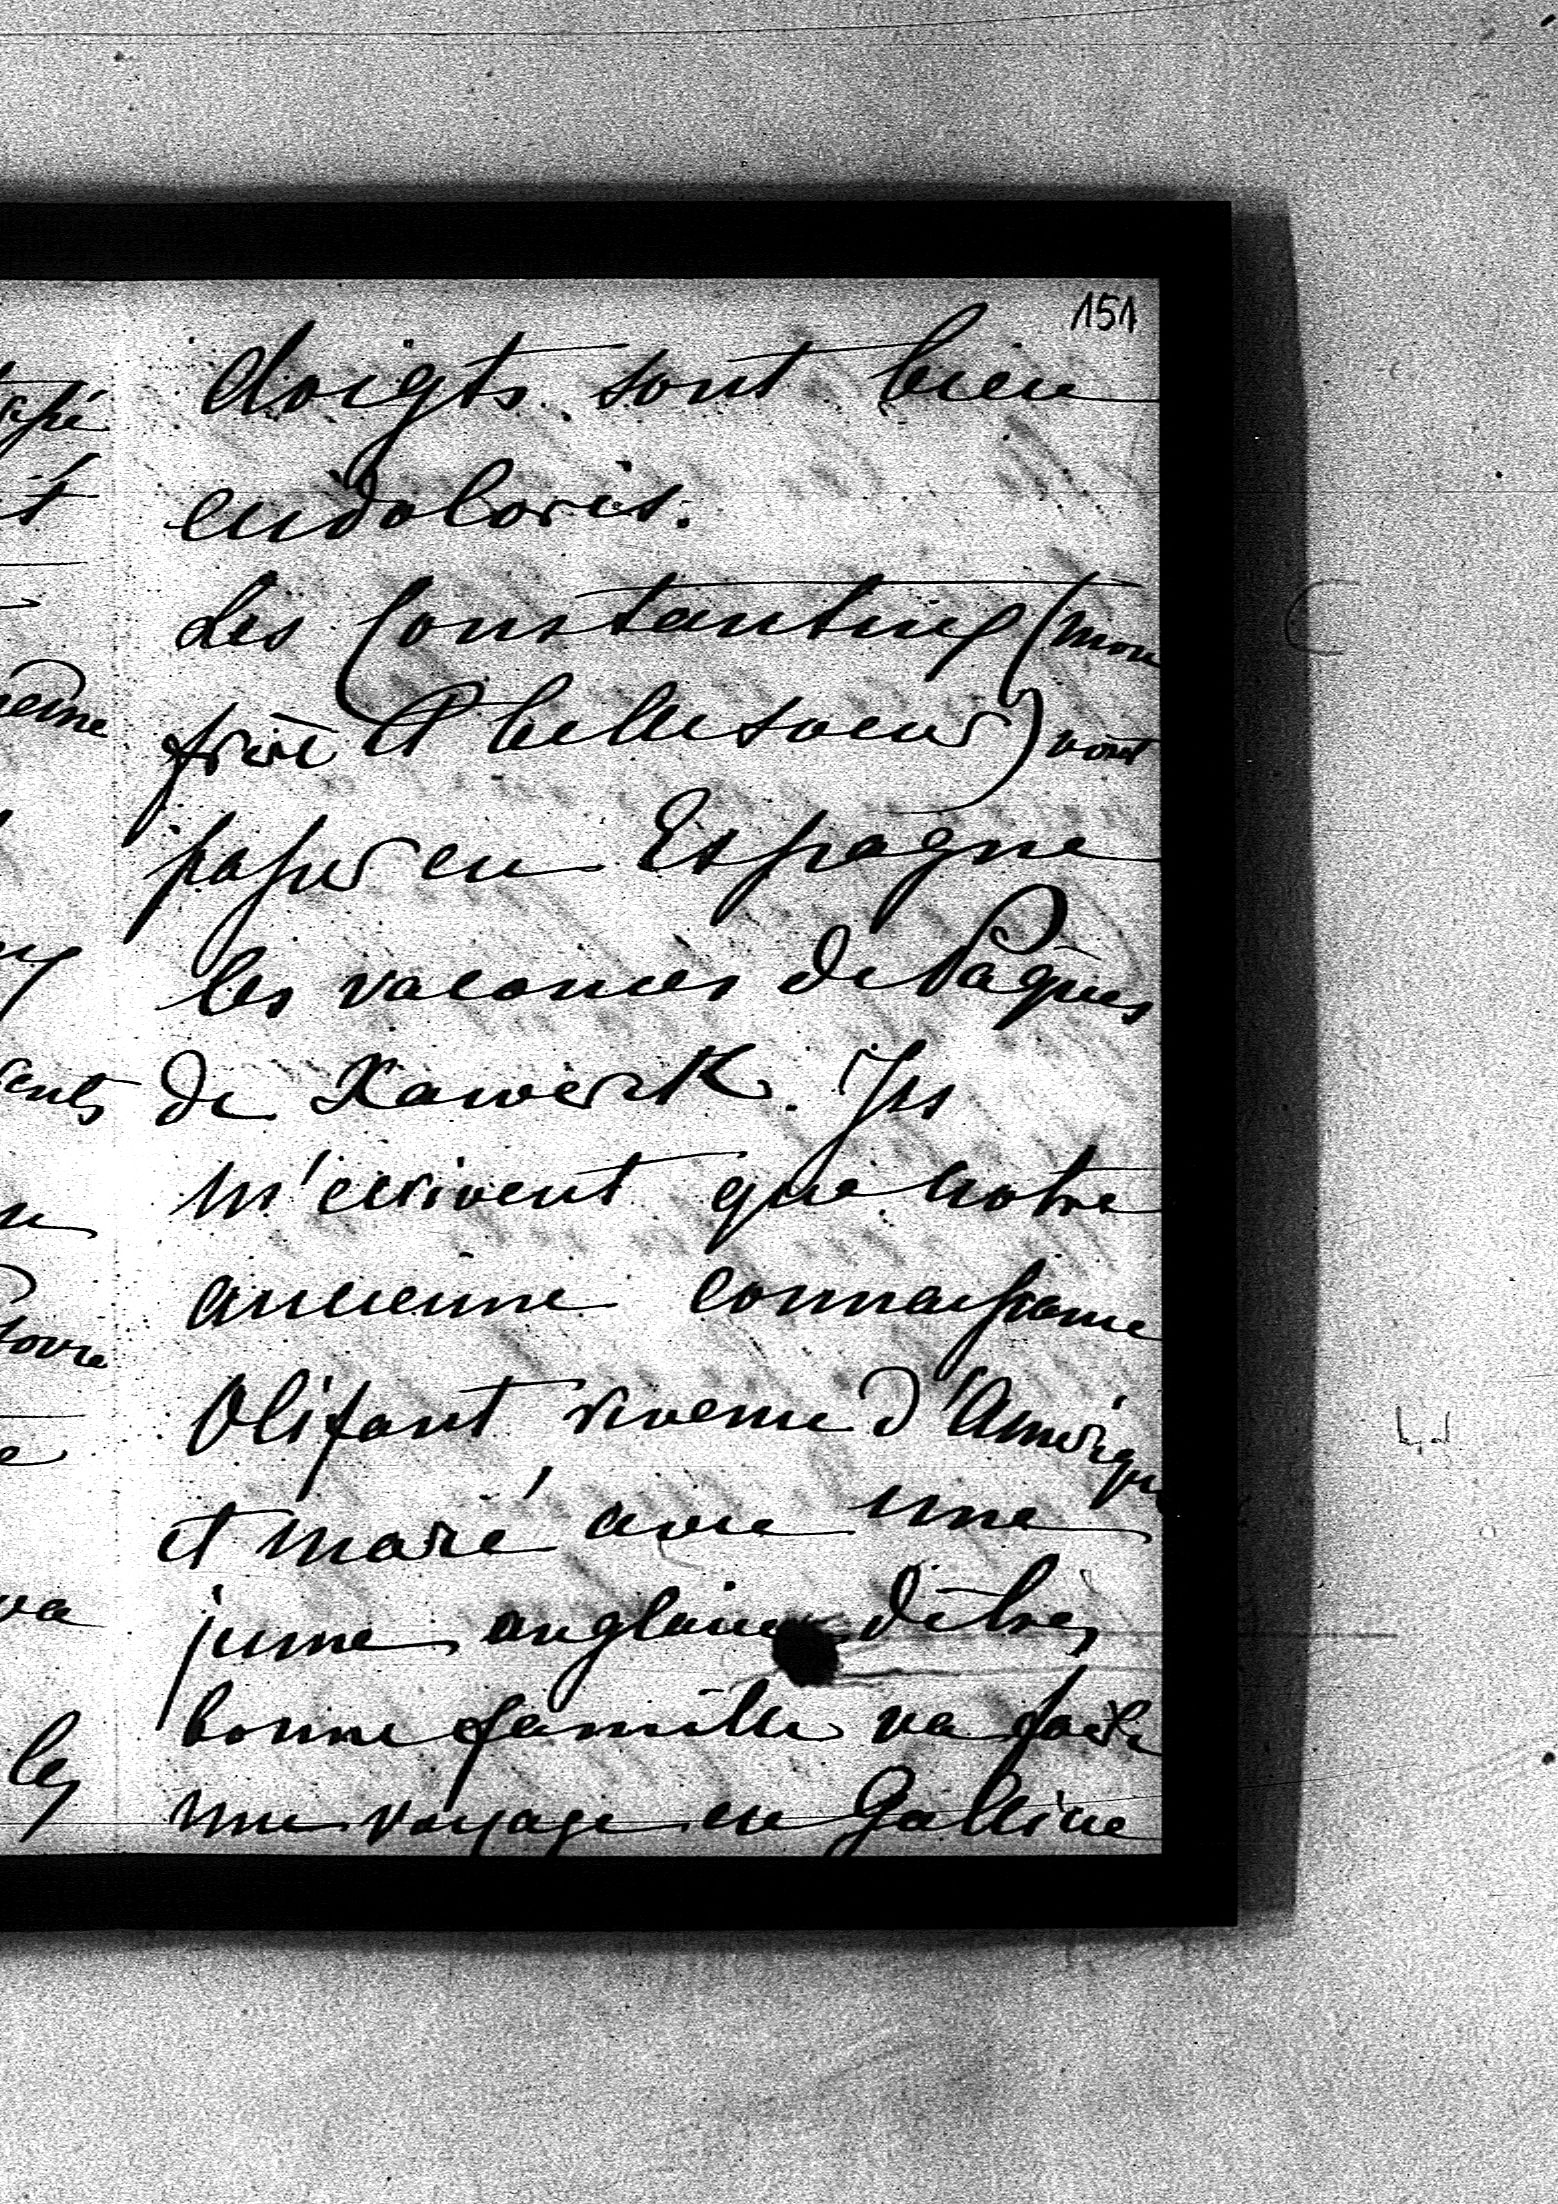 151
doigts sont bien
endoloris.
Les Constantins (mon
frère et belle soeur) vont
passer en Espagne
les vacances de Pâques
de Xawerek. Ils
m'écrivent que notre
ancienne connaissance
Olifant revenu d'Amérique
et marié avec une
jeune anglaise de très
bonne famille va faire
une voyage en Gallicie